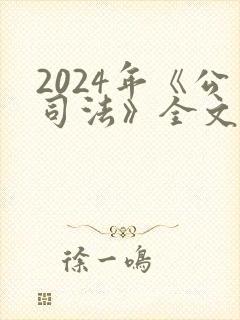 2024年《公
司法》全文
徐一鸣